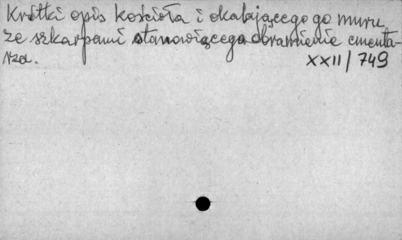 Krótki opis kościoła i okalającego go muru
ze szkarpami stanowiącego obramienie cmenta-
rza. XXII/749